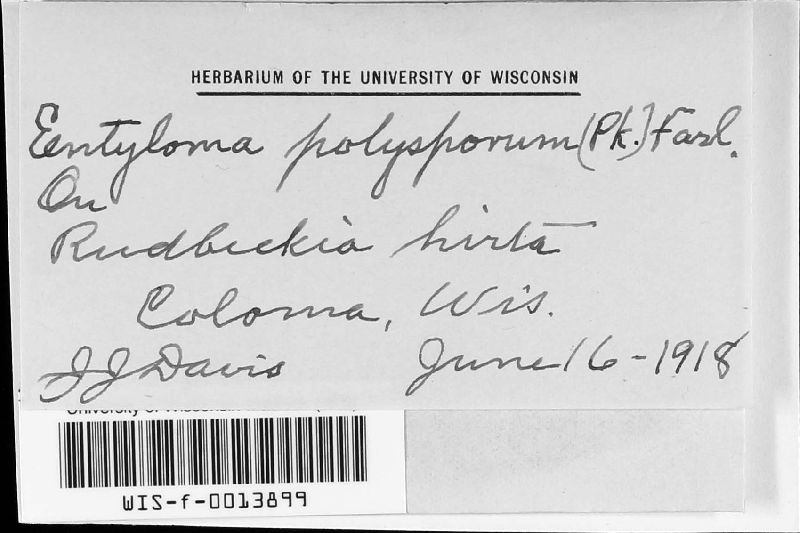 HERBARIUM OF THE UNIVERSITY OF WISCONSIN
Entyloma polysporum (Pk.) Farl.
On
Rudbeckia hirta
Coloma, Wis.
JJ Davis June 16-1918
WIS-f-0013899